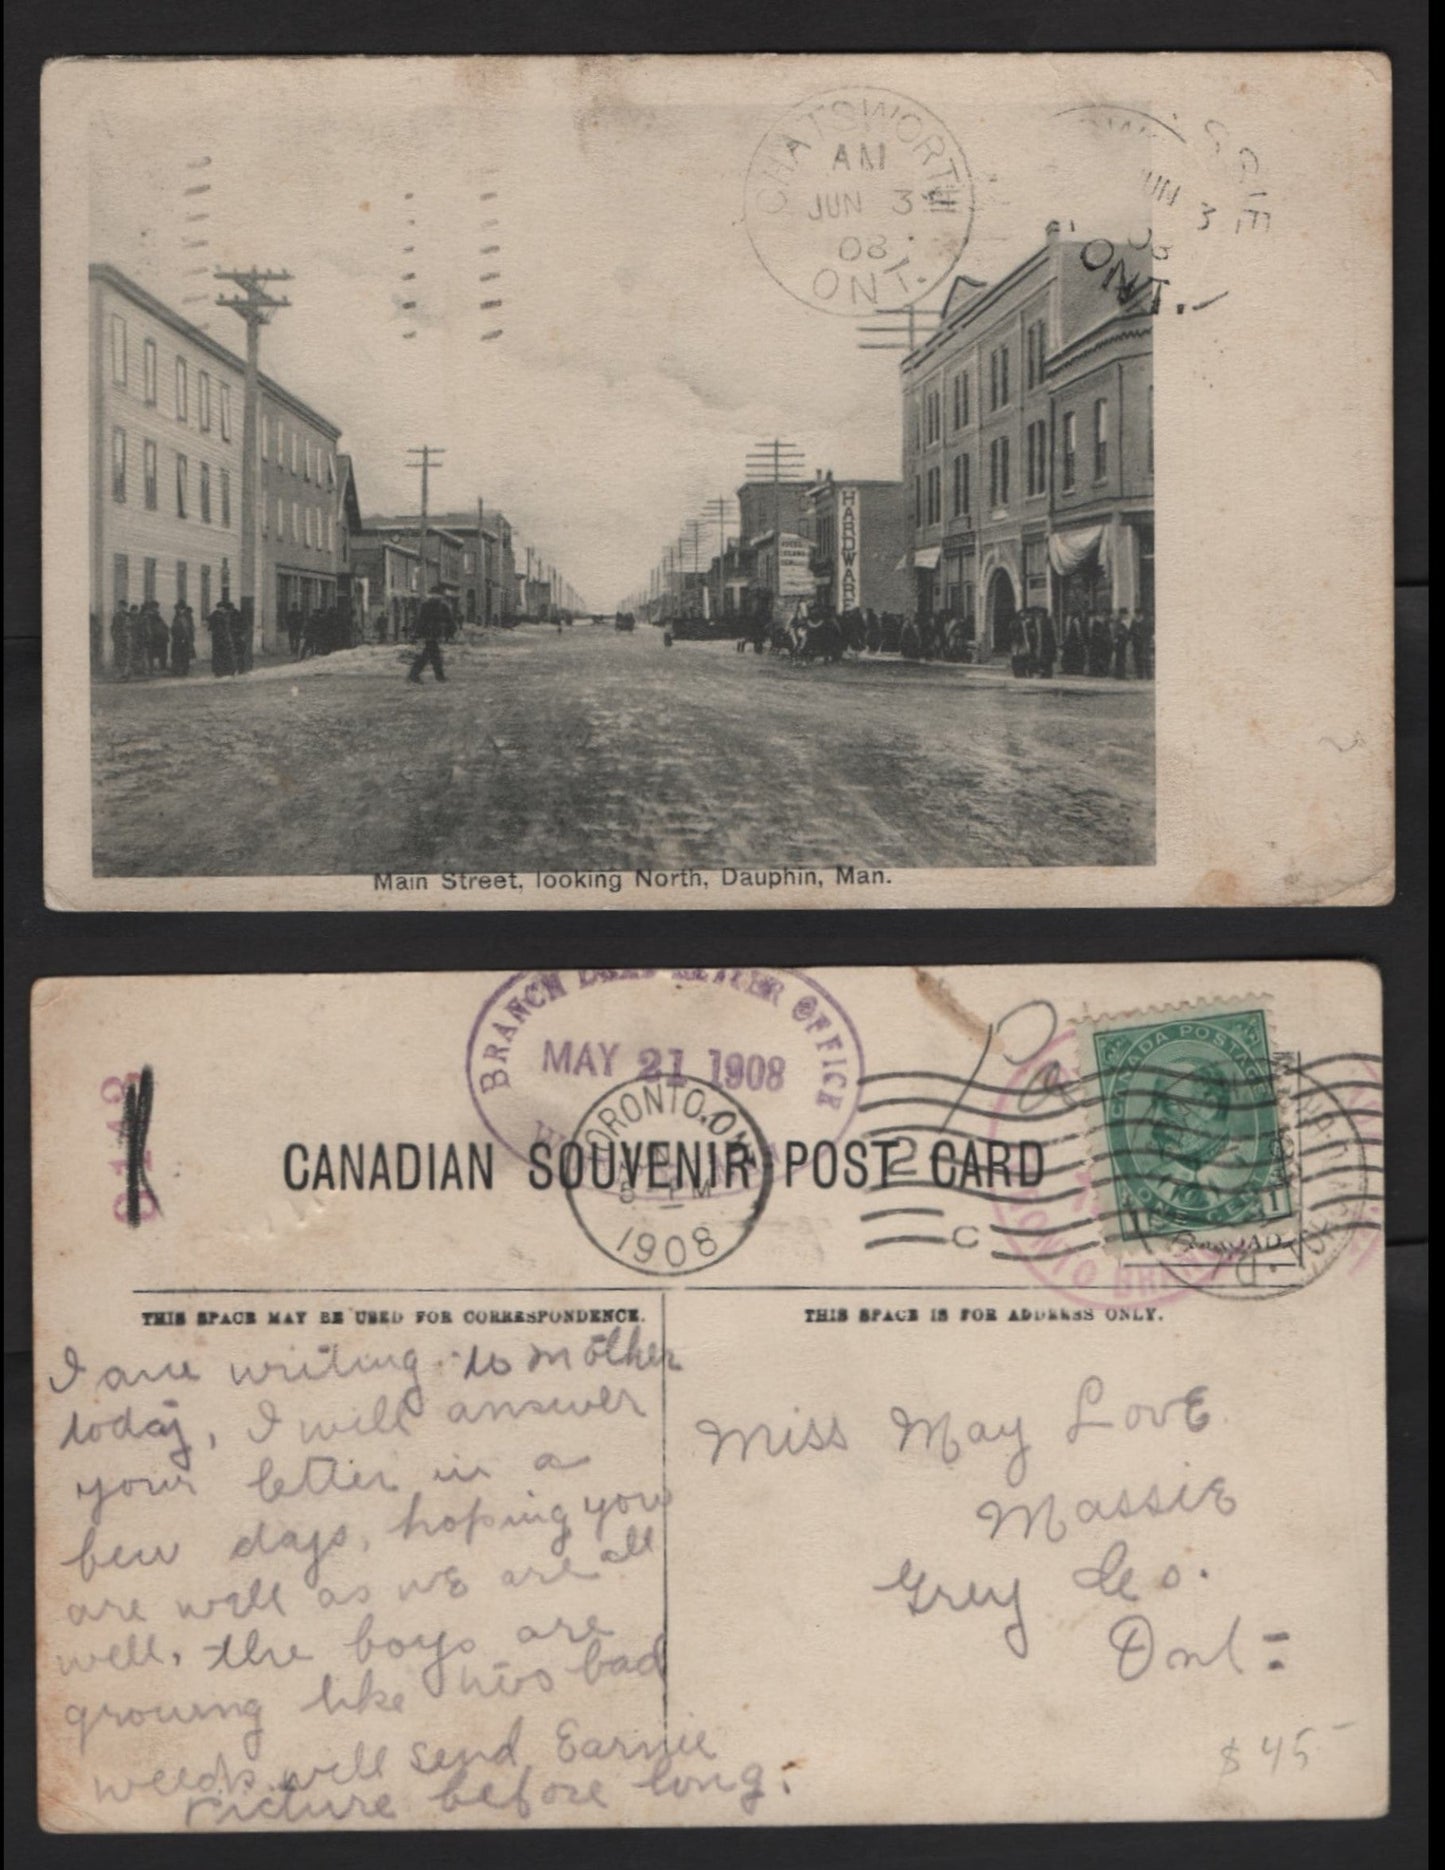 CHATSWORTH
AM
JUN 3
08
ONT.
JUN 3
08
ONT.
HARDWARE
Main Street, looking North, Dauphin, Man.
BRANCH DEAD LETTER OFFICE
MAY 21 1908
TORONTO, ONT
PM
1908
CANADIAN SOUVENIR POST CARD
2
C
CANADA POSTAGE
1 ONE CENT 1
THIS SPACE MAY BE USED FOR CORRESPONDENCE.
THIS SPACE IS FOR ADDRESS ONLY.
I are writing to mother
today, I will answer
your letter in a
few days, hoping you
are well as we are all
well, the boys are
growing like two bad
weeds. will send Earnie
Picture before long.
Miss May Love
Massie
Grey Co.
Ont =
$45